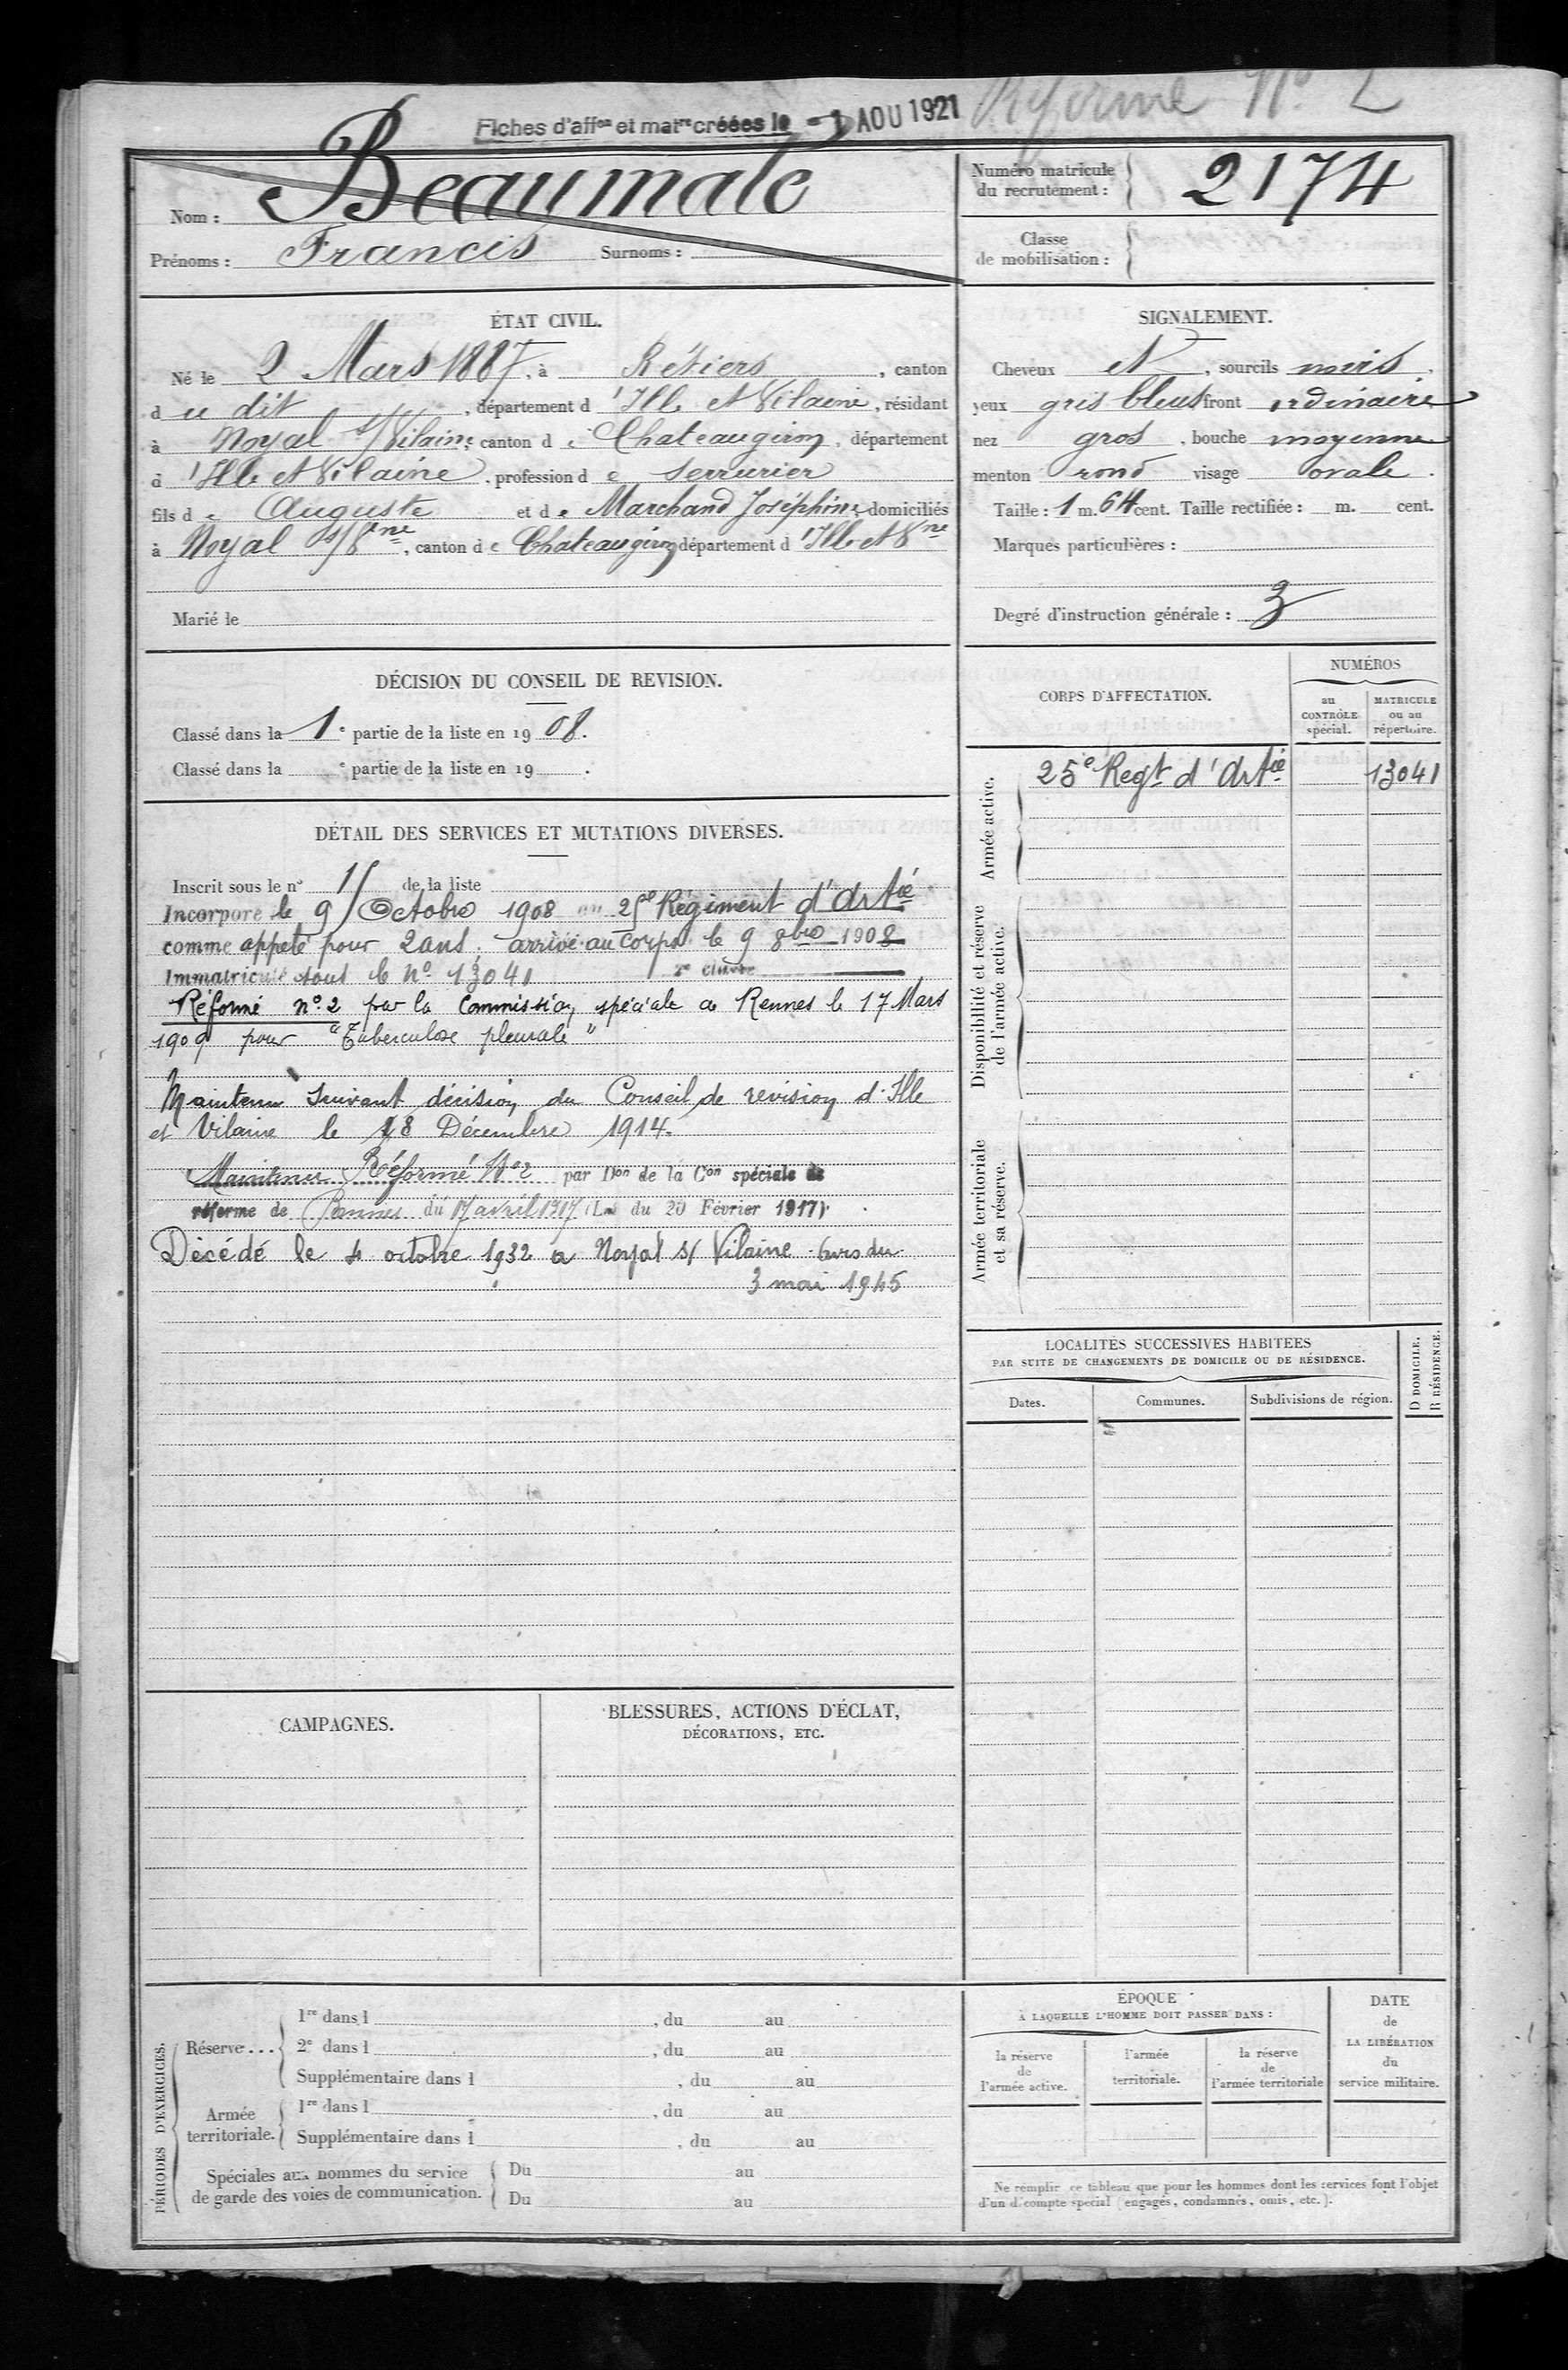 Fiches d'affon et matre créées le - 1 AOU 1921
Réforme N° 2
Nom : Beaumale
Prénoms : Francis Surnoms :
Numéro matricule
du recrutement : 2174
Classe
de mobilisation :
ÉTAT CIVIL.
Né le 2 Mars 1887, à Rétiers, canton
du dit, département d'Ille et Vilaine, résidant
à Noyal s/Vilaine, canton de Chateaugiron, département
d'Ille et Vilaine, profession de serrurier
fils de Auguste et de Marchand Joséphine domiciliés
à Noyal s/Vne, canton de Chateaugiron département d'Ille et Vne
Marié le
SIGNALEMENT.
Cheveux et, sourcils noirs,
yeux gris bleus front ordinaire
nez gros, bouche moyenne
menton rond visage ovale.
Taille : 1 m. 64 cent. Taille rectifiée : m. cent.
Marques particulières :
Degré d'instruction générale : 3
DÉCISION DU CONSEIL DE REVISION.
Classé dans la 1e partie de la liste en 1908.
Classé dans la e partie de la liste en 19 .
DÉTAIL DES SERVICES ET MUTATIONS DIVERSES.
Inscrit sous le n° 15 de la liste
Incorporé le 9 Octobre 1908 au 25e Régiment d'Artie
comme appelé pour 2 ans. arrivé au corps le 9 8bre 1908
Immatriculé sous le N° 13041 2e classe
Réformé n° 2 par la Commission spéciale de Rennes le 17 Mars
1909 pour "Tuberculose pleurale"
Maintenu suivant décision du Conseil de revision d'Ille
et Vilaine le 18 Décembre 1914.
Maintenu Réformé N° 2 par Don de la Con spéciale de
réforme de Rennes du 17 avril 1917 (Loi du 20 Février 1917).
Décédé le 4 octobre 1932 à Noyal s/ Vilaine. Avis du
3 mai 1945
CORPS D'AFFECTATION.
NUMÉROS
au
CONTRÔLE
spécial.
MATRICULE
ou au
répertoire.
Armée active.
25e Regt d'Artie 13041
Disponibilité et réserve
de l'armée active.
Armée territoriale
et sa réserve.
LOCALITÉS SUCCESSIVES HABITÉES
PAR SUITE DE CHANGEMENTS DE DOMICILE OU DE RÉSIDENCE.
Dates.
Communes.
Subdivisions de région.
D DOMICILE.
R RÉSIDENCE.
CAMPAGNES.
BLESSURES, ACTIONS D'ÉCLAT,
DÉCORATIONS, ETC.
PÉRIODES D'EXERCICES.
Réserve...
1re dans l , du au
2e dans l , du au
Supplémentaire dans l , du au
Armée
territoriale.
1re dans l , du au
Supplémentaire dans l , du au
Spéciales aux hommes du service
de garde des voies de communication.
Du au
Du au
ÉPOQUE
À LAQUELLE L'HOMME DOIT PASSER DANS :
la réserve
de
l'armée active.
l'armée
territoriale.
la réserve
de
l'armée territoriale
DATE
de
LA LIBÉRATION
du
service militaire.
Ne remplir ce tableau que pour les hommes dont les services font l'objet
d'un décompte spécial (engagés, condamnés, omis, etc.).